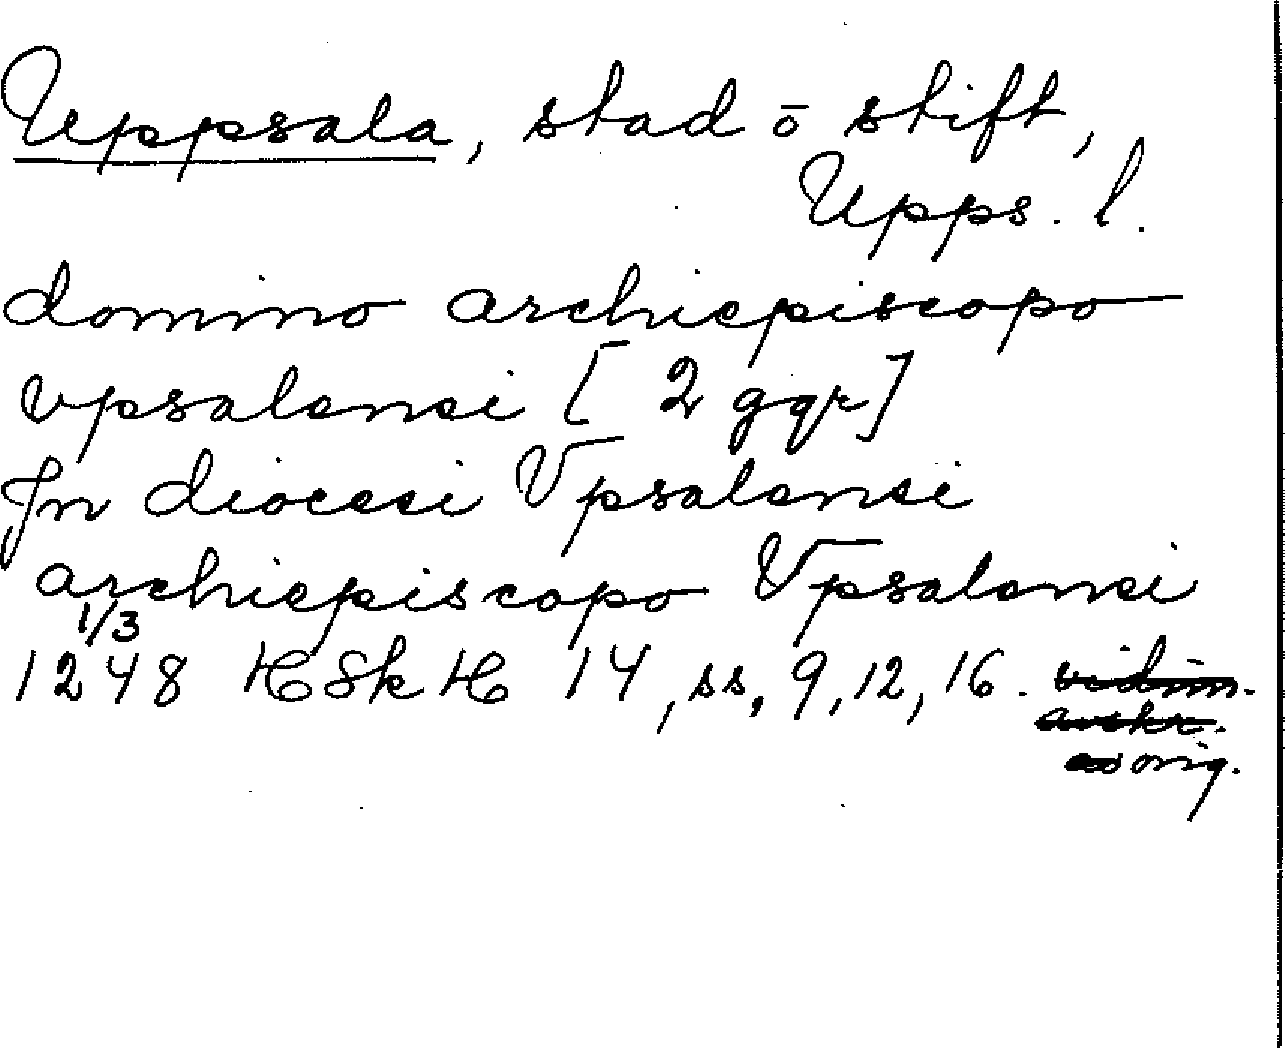 Uppsala, stad ō stift,
Upps. l.
domino archiepiscopo
vpsalensi [2 ggr]
Jn diocesi Vpsalensi
archiepiscopo Vpsalensi
1/3
1248 HSkH 14, ss, 9, 12, 16. vidim.
avskr.
orig.